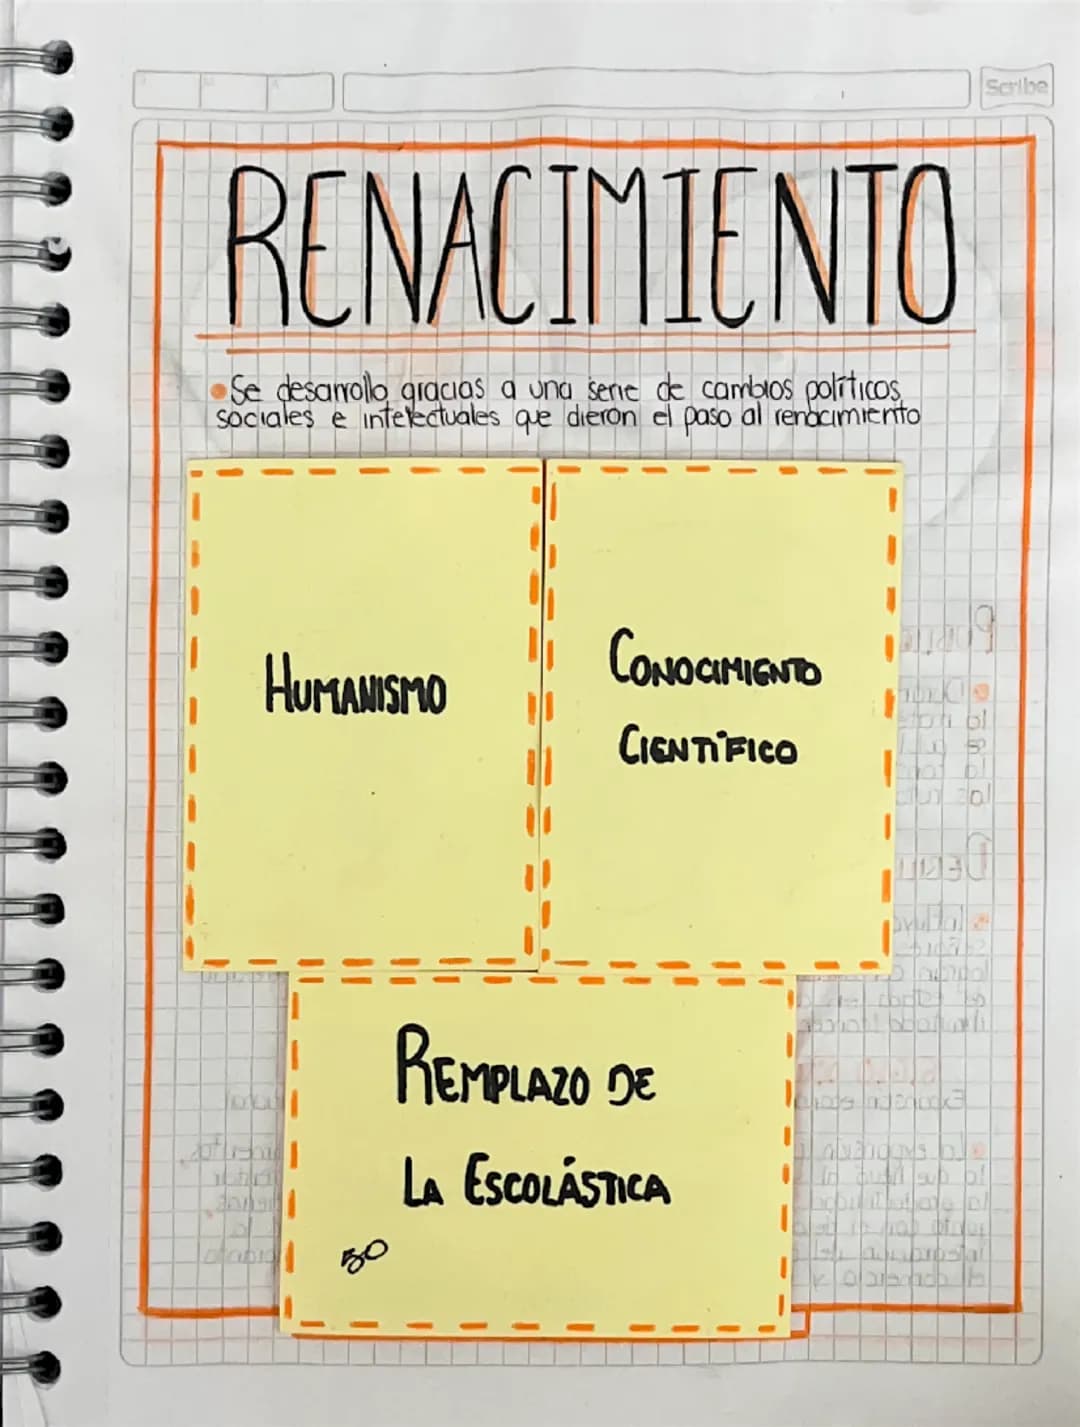 Scribe
RENACIMIENTO
Se desarrollo gracias a una serie de cambios políticos,
sociales e intelectuales que dieron el paso al renacimiento
HUMANISMO
CONOCIMIENTO
CIENTÍFICO
REMPLAZO DE
LA ESCOLÁSTICA